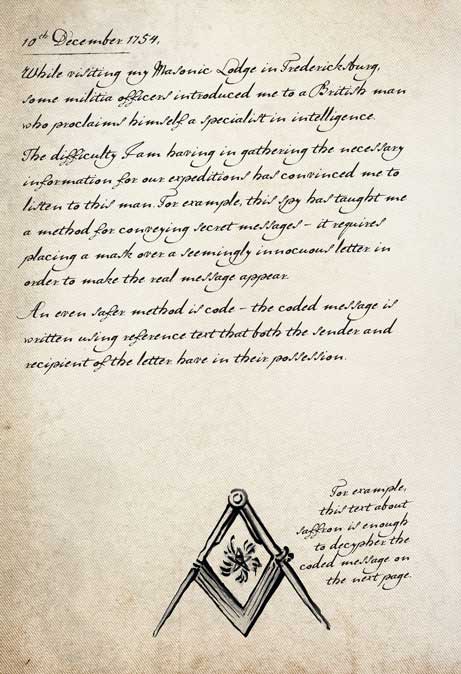 10th December 1754,
While visiting my Masonic Lodge in Fredericksburg,
some militia officers introduced me to a British man
who proclaims himself a specialist in intelligence.
The difficulty I am having in gathering the necessary
information for our expeditions has convinced me to
listen to this man. For example, this spy has taught me
a method for conveying secret messages – it requires
placing a mask over a seemingly innocuous letter in
order to make the real message appear.
An even safer method is code – the coded message is
written using reference text that both the sender and
recipient of the letter have in their possession.
For example,
this text about
saffron is enough
to decypher the
coded message on
the next page.